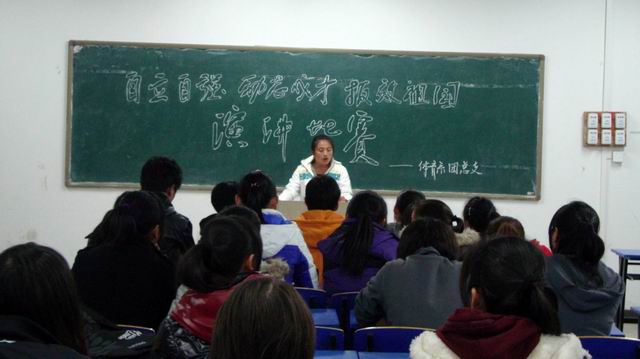 自立自强 励志成才 报效祖国
演讲比赛
——体育系团总支